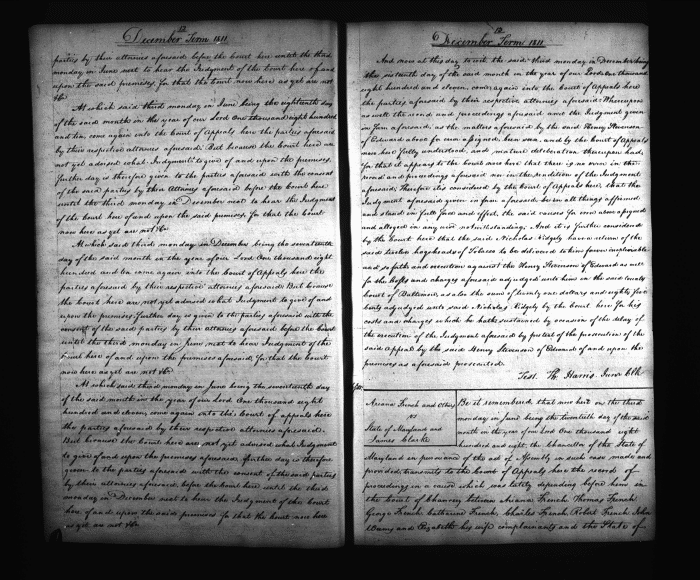 12
December Term 1811
parties by their attornies aforesaid before the court here until the third
monday in June next to hear the Judgment of the court here of and
upon the said premises. For that the court now here as yet are not
&c.
At which said third monday in June being the eighteenth day
of the said month in the year of our Lord One thousand eight hundred
and ten, come again into the court of Appeals here the parties aforesaid
by their respective attornies aforesaid. But because the court here are
not yet advised what Judgment to give of and upon the premises.
Further day is therefore given to the parties aforesaid with the consent
of the said parties by their Attornies aforesaid before the court here
until the third monday in December next to hear the Judgment
of the court here of and upon the said premises. For that the court
now here as yet are not &c.
At which said third monday in December being the seventeenth
day of the said month in the year of our Lord One thousand eight
hundred and ten come again into the court of Appeals here the
parties aforesaid by their respective attornies aforesaid. But because
the court here are not yet advised what Judgment to give of and
upon the premises. Further day is given to the parties aforesaid with the
consent of the said parties by their attornies aforesaid before the court
until the third monday in June next to hear Judgment of the
court here of and upon the premises aforesaid. For that the court
now here as yet are not &c.
At which said third monday in June being the seventeenth day
of the said month in the year of our Lord One thousand eight
hundred and eleven, come again into the court of appeals here
the parties aforesaid by their respective attornies aforesaid.
But because the court here are not yet advised what Judgment
to give of and upon the premises aforesaid. Further day is therefore
given to the parties aforesaid with the consent of the said parties
by their attornies aforesaid, before the court here until the third
monday in December next to hear the Judgment of the court
here, of and upon the said premises. For that the court now here
as yet are not &c.
12
December Term 1811
And now at this day to wit the said third monday in December being
the sixteenth day of the said month in the year of our Lord One thousand
eight hundred and eleven, come again into the court of Appeals here
the parties aforesaid by their respective attornies aforesaid. Whereupon
as well the record and proceedings aforesaid and the Judgment given
in form aforesaid, as the matters aforesaid by the said Henry Stevenson
of Edward above for error assigned, being seen, and by the court of Appeals
now here fully understood, and mature deliberation thereupon had,
For that it appears to the court now here that there is no error in the
record and proceedings aforesaid nor in the rendition of the Judgment
aforesaid. Therefore it is considered by the court of Appeals here, that the
Judgment aforesaid given in form aforesaid be in all things affirmed
and stand in full force and effect, the said causes for error above assigned
and alleged in any wise notwithstanding. And it is further considered
by the court here that the said Nicholas Ridgely have a return of the
said twelve hogsheads of Tobacco to be delivered to him forever irrepleviable
and so forth and execution against the Henry Stevenson of Edward as well
for the costs and charges aforesaid adjudged unto him in the said county
court of Baltimore, as also the sum of twenty one dollars and eighty five
cents adjudged unto said Nicholas Ridgely by the court here for his
costs and charges which he hath sustained by occasion of the delay of
the execution of the Judgment aforesaid by pretext of the prosecution of the
said Appeal by the said Henry Stevenson of Edward of and upon the
premises as aforesaid prosecuted.
Test. Th. Harris Junr Clk
Ariana French and Others
vs
State of Maryland and
James Clarke
Be it remembered, that now here on the third
monday in June being the twentieth day of the said
month in the year of our Lord One thousand eight
hundred and eight, the Chancellor of the State of
Maryland in pursuance of the act of Assembly in such case made and
provided transmits to the court of Appeals here the record of
proceedings in a cause which was lately depending before him in
the court of Chancery between Ariana French, Thomas French
George French, Catharine French, Charles French, Robert French, John
and Elizabeth his wife complainants and the State of